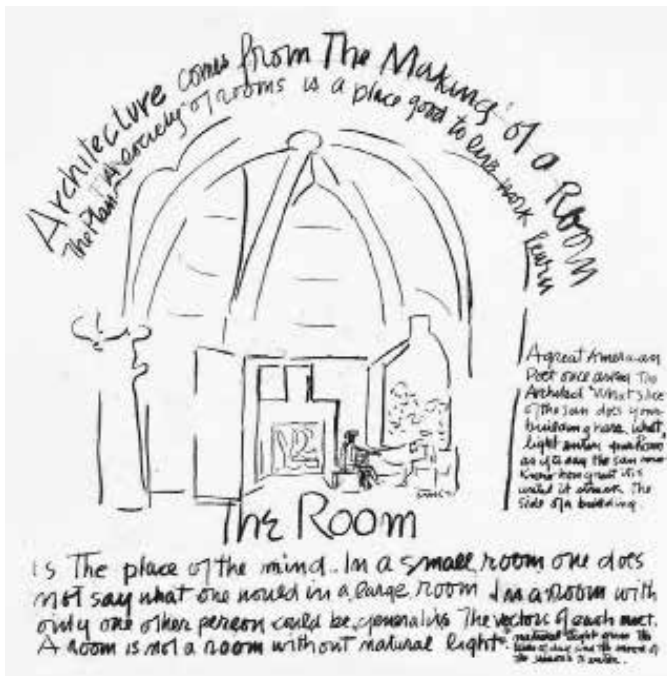 Architecture comes from The Making of a Room
The Plan A society of rooms is a place good to live work learn
A great American
Poet once asked The
Architect "What slice
of the sun does your
building have. What
light enters your Room
as if to say the sun never
knew how great it is
until it struck the
side of a building.
The Room
is The place of the mind. In a small room one does
not say what one would in a large room In a room with
only one other person could be generative The vectors of each meet.
A room is not a room without natural light
natural light gives the
time of day and the mood of
the seasons to enter.